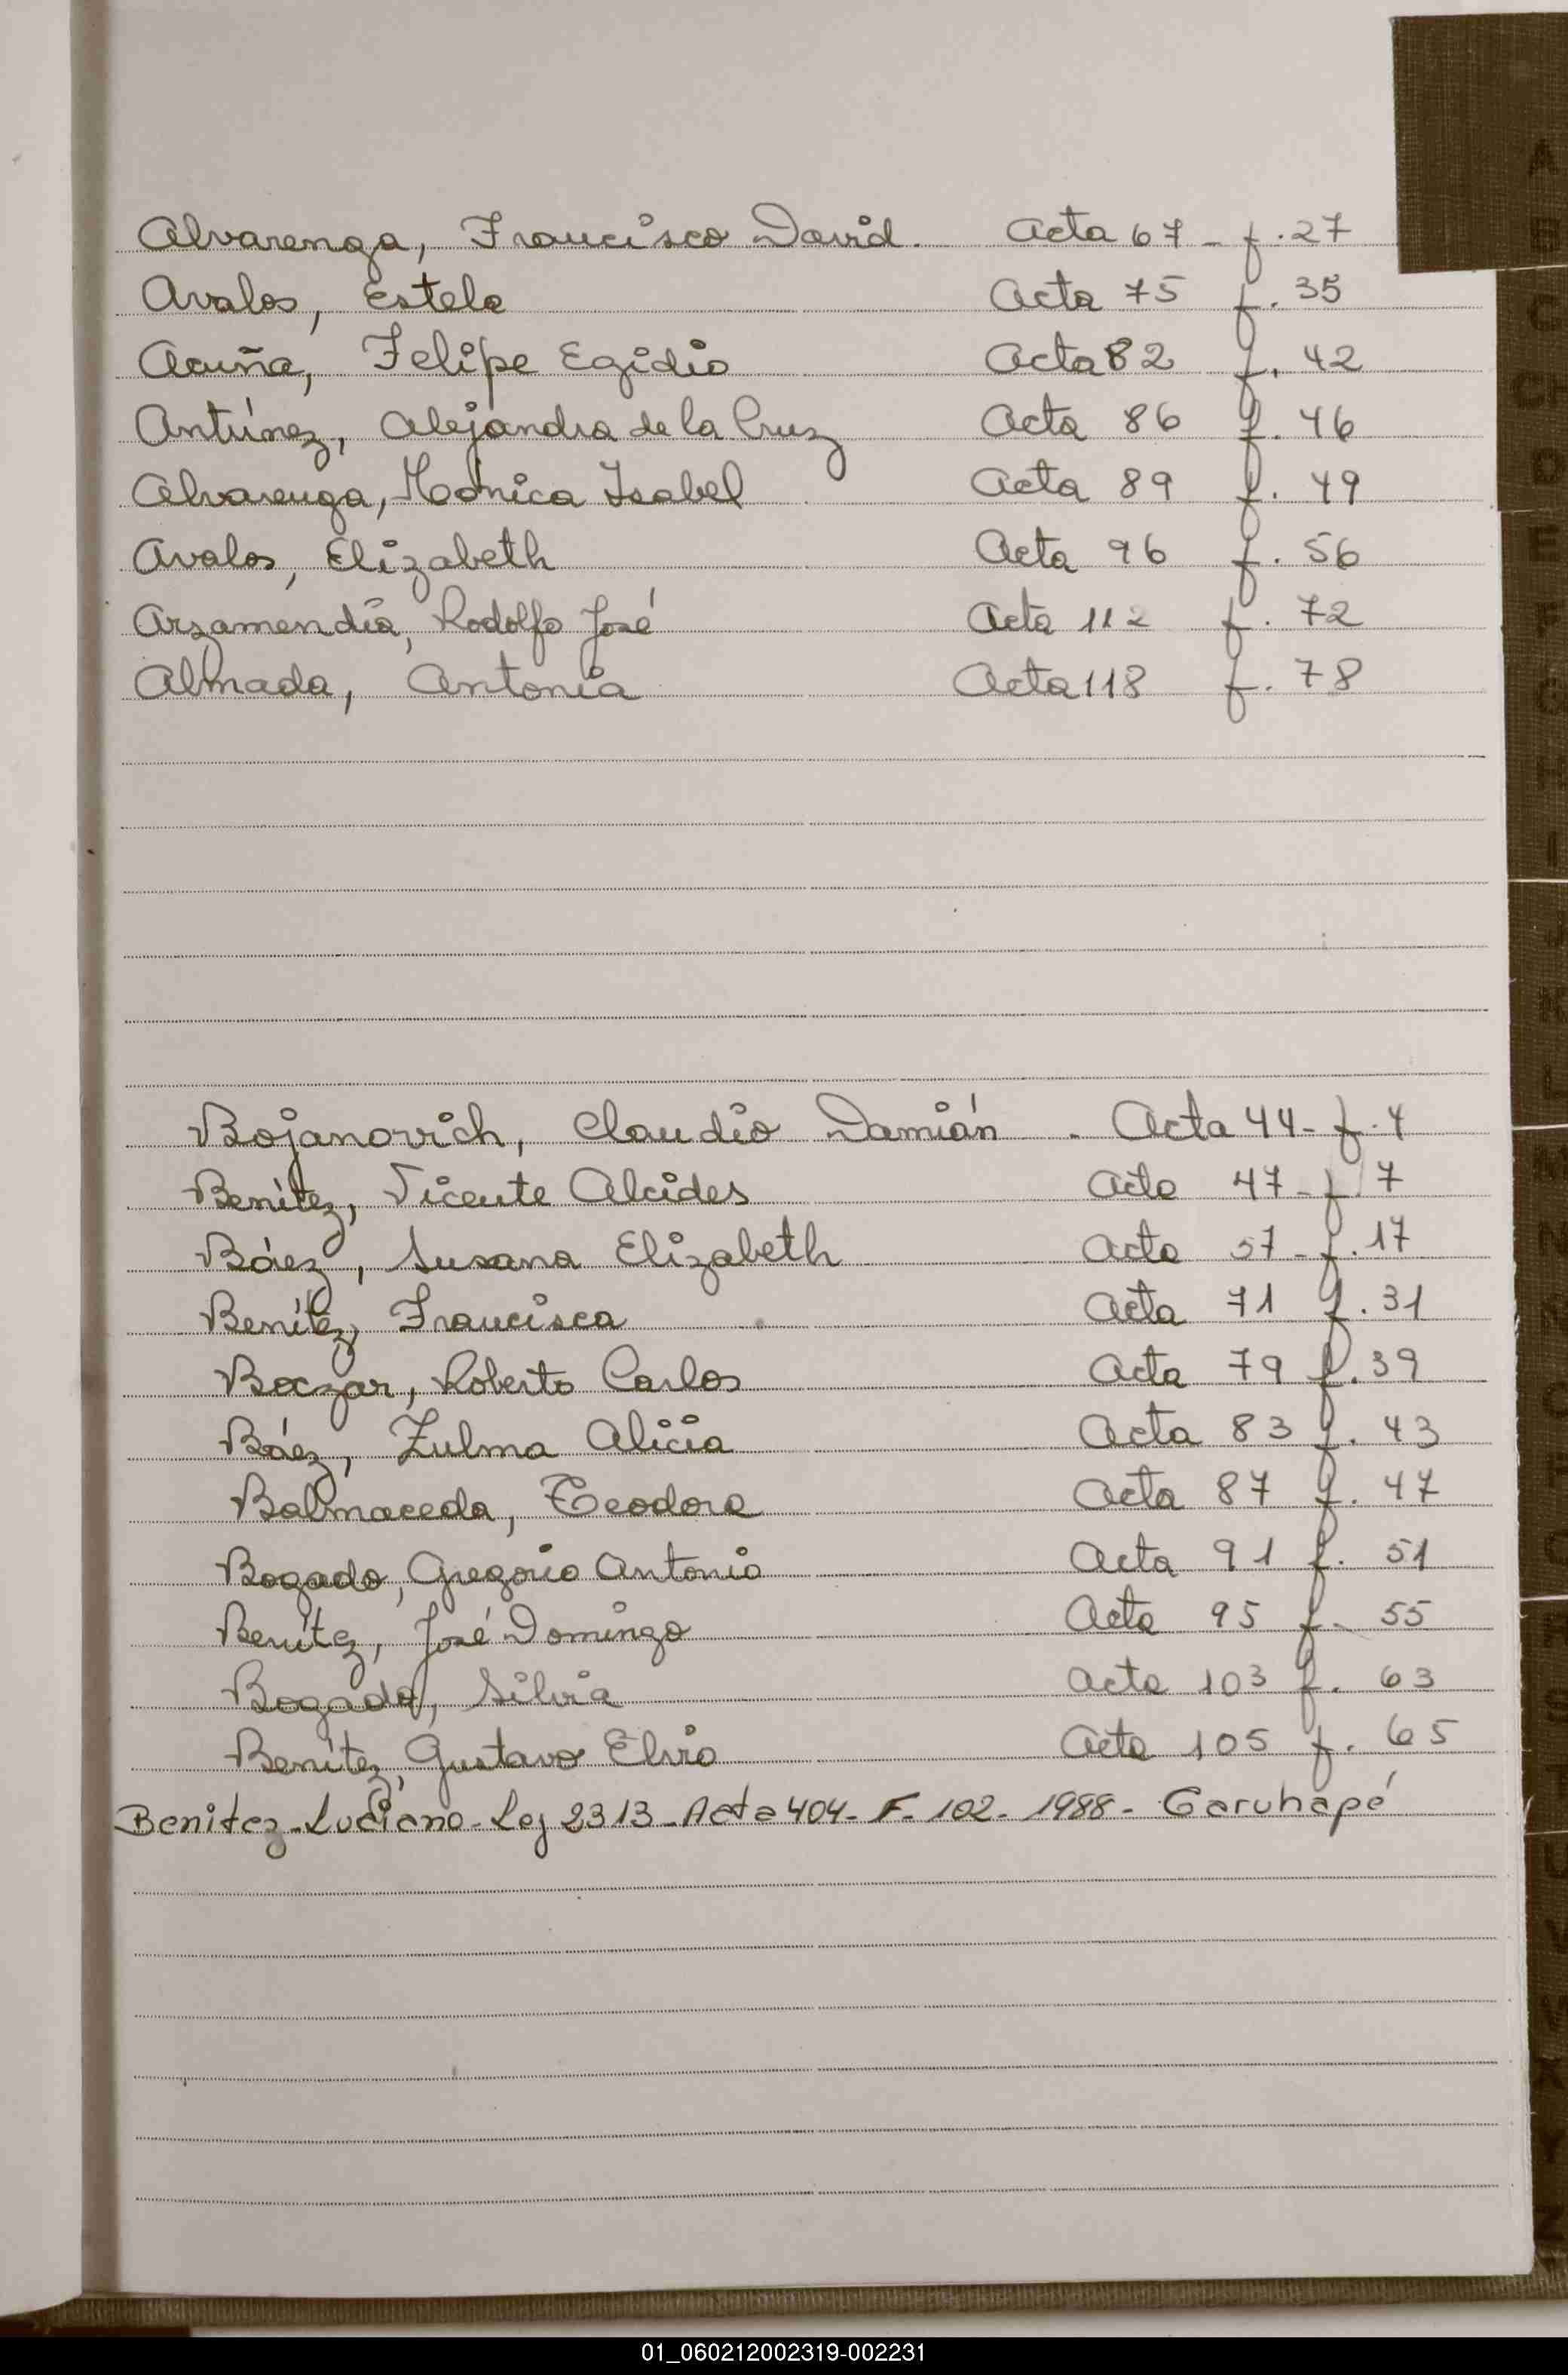 Alvarenga, Francisco David. Acta 67 - f. 27
Avalos, Estela Acta 75 f. 35
Acuña, Felipe Egidio Acta 82 f. 42
Antúnez, Alejandra de la Cruz Acta 86 f. 46
Alvarenga, Mónica Isabel Acta 89 f. 49
Avalos, Elizabeth Acta 96 f. 56
Arzamendia, Rodolfo José Acta 112 f. 72
Almada, Antonia Acta 118 f. 78
Bojanovich, Claudio Damián - Acta 44 - f. 4
Benítez, Vicente Alcides Acta 47 - f. 7
Báez, Susana Elizabeth Acta 57 - f. 17
Benítez, Francisca Acta 71 f. 31
Boczar, Roberto Carlos Acta 79 f. 39
Báez, Zulma Alicia Acta 83 f. 43
Balmaceda, Teodora Acta 87 f. 47
Bogado, Gregorio Antonio Acta 91 f. 51
Benítez, José Domingo Acta 95 f. 55
Bogado, Silvia Acta 103 f. 63
Benítez, Gustavo Elvio Acta 105 f. 65
Benitez - Luciano - Ley 2313 - Acta 404 - F - 102 - 1988 - Garuhapé
01_060212002319-002231